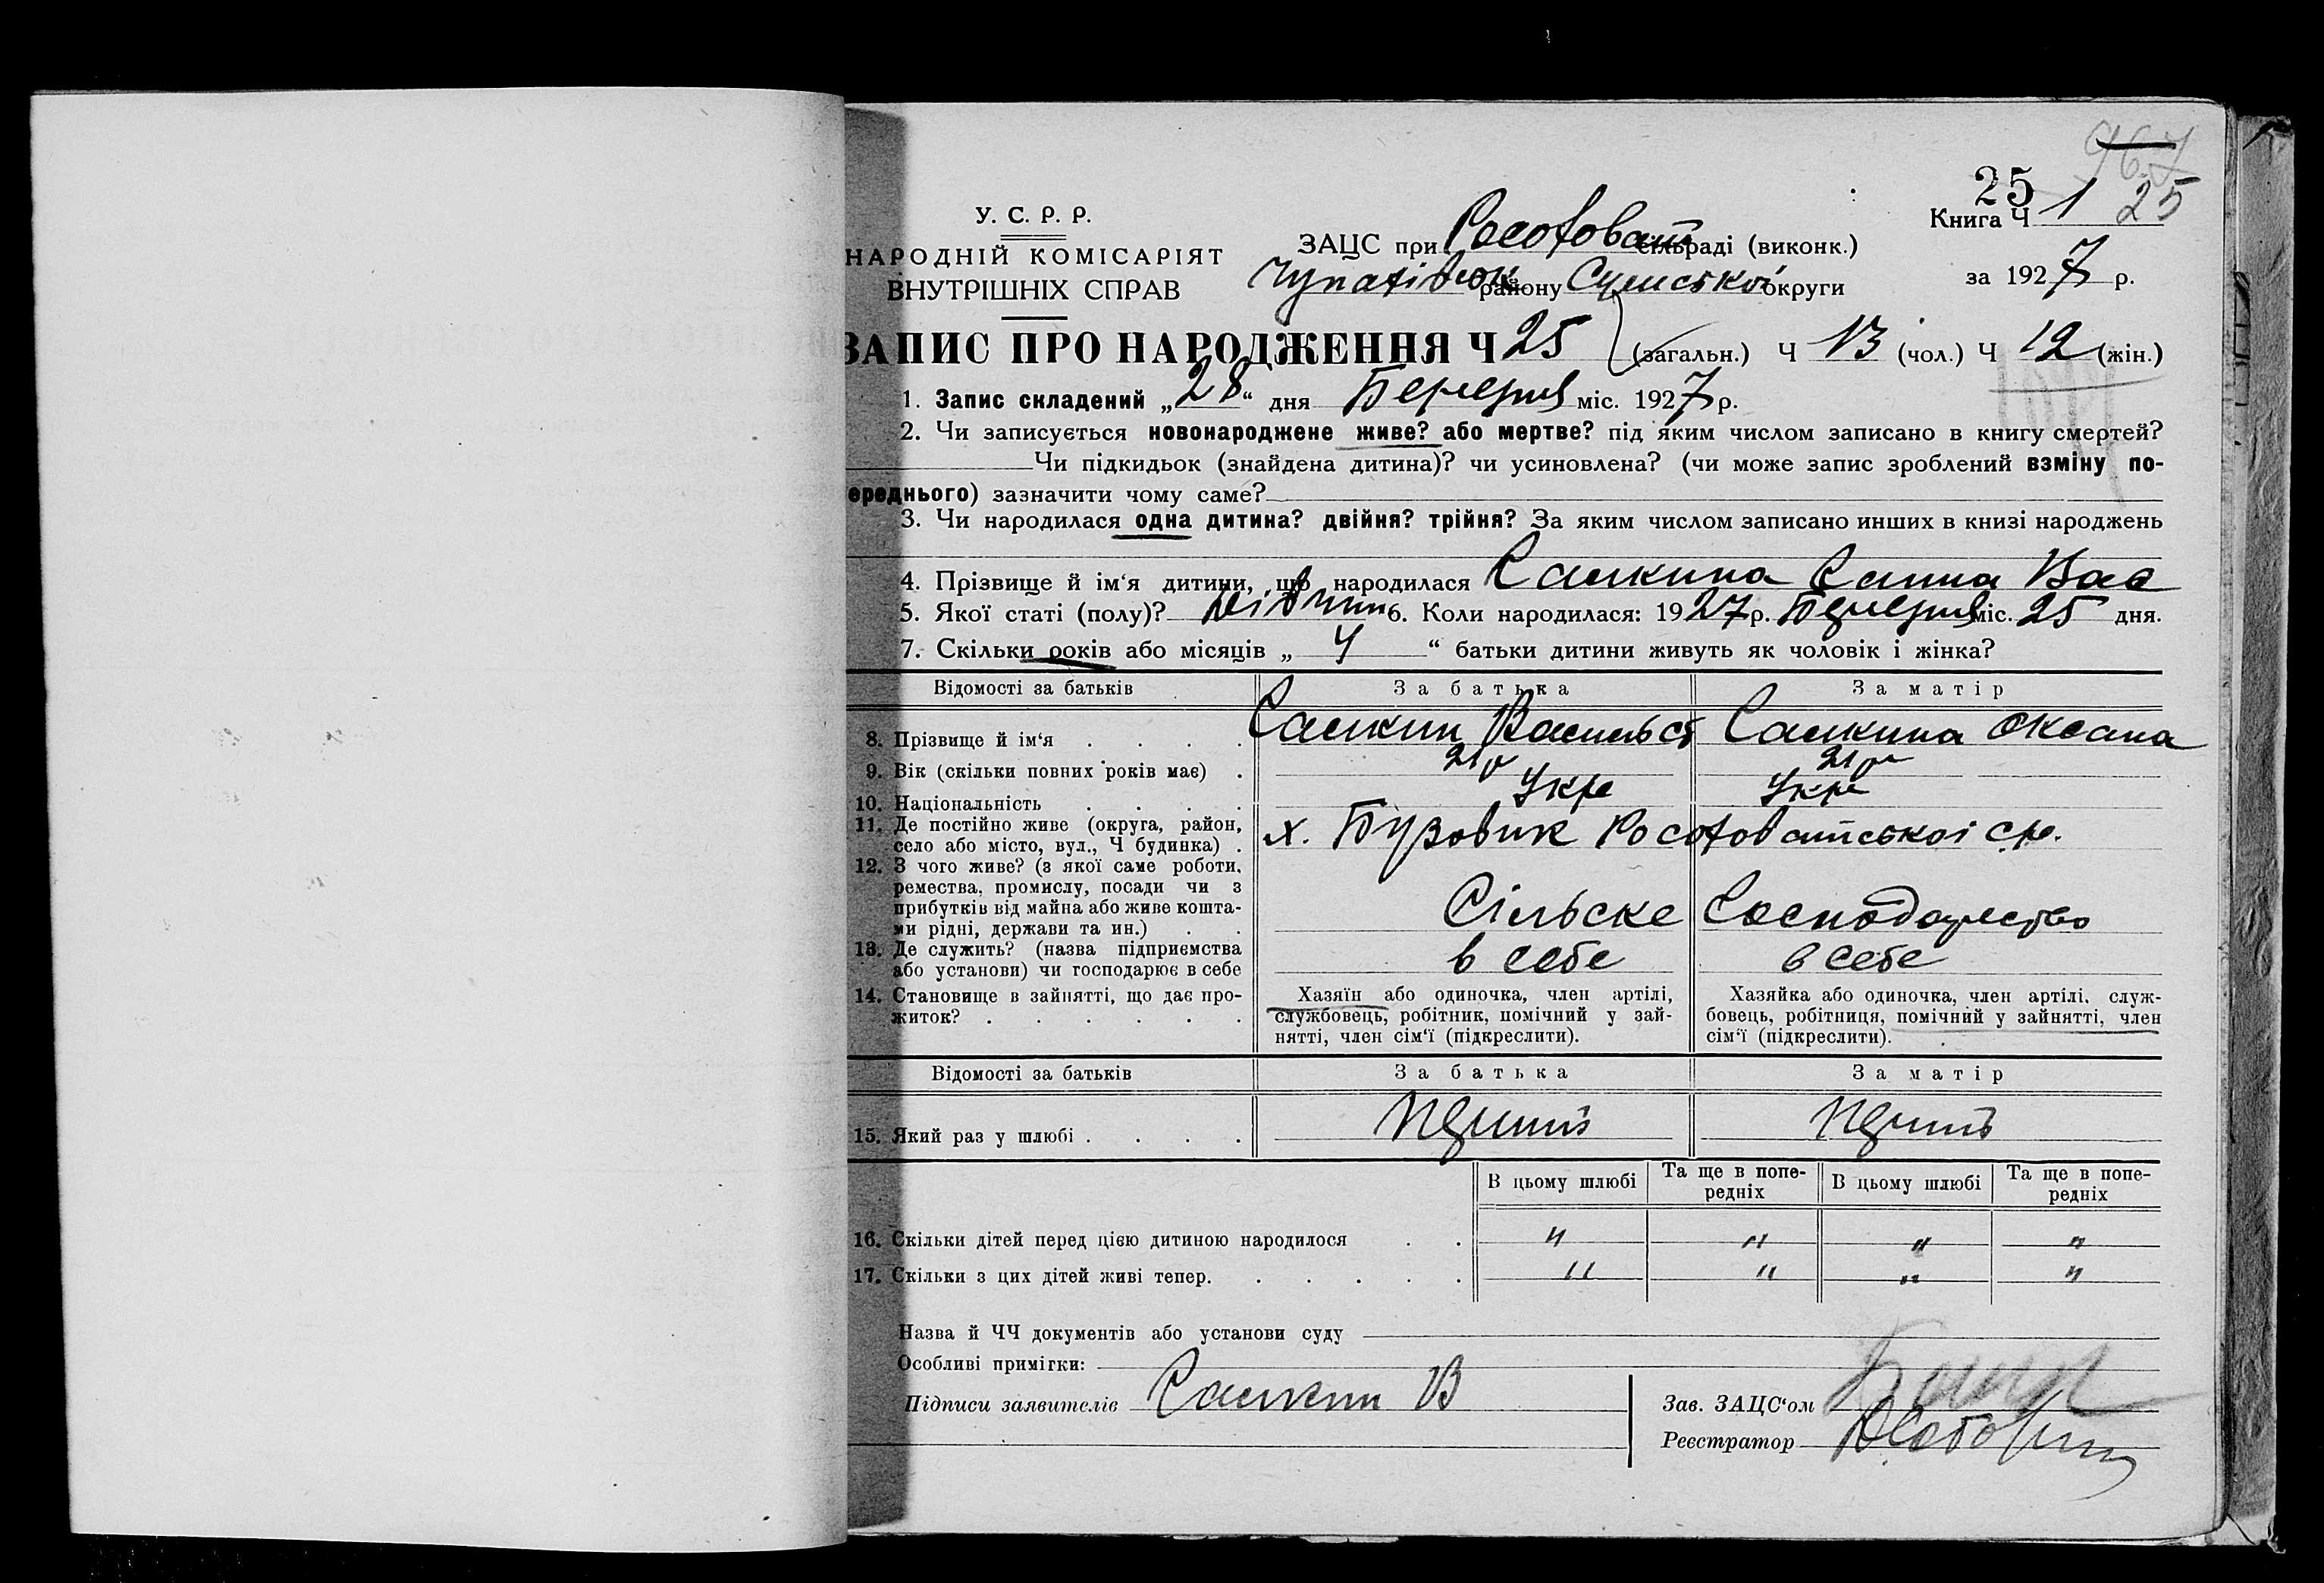 967
25
Книга Ч 1 25
У. С. Р. Р.
НАРОДНІЙ КОМІСАРІЯТ
ВНУТРІШНІХ СПРАВ
ЗАЦС при сільраді (виконк.)
району Сумської округи
за 1927 р.
ЗАПИС ПРО НАРОДЖЕННЯ Ч 25 (загальн.) Ч 13 (чол.) Ч 12 (жін.)
1. Запис складений „28“ дня Березня міс. 1927 р.
2. Чи записується новонароджене живе? або мертве? під яким числом записано в книгу смертей?
Чи підкидьок (знайдена дитина)? чи усиновлена? (чи може запис зроблений взміну по-
ереднього) зазначити чому саме?
3. Чи народилася одна дитина? двійня? трійня? За яким числом записано инших в книзі народжень
4. Прізвище й ім‘я дитини, що народилася Самкина Ганна Вас
5. Якої статі (полу)? Дівчин 6. Коли народилася: 1927 р. Березня міс. 25 дня.
7. Скільки років або місяців „ 4 “ батьки дитини живуть як чоловік і жінка?
Відомості за батьків За батька За матір
8. Прізвище й ім‘я . . . . Самкин Василь Самкина Оксана
9. Вік (скільки повних років має) . 21 р 21 р
10. Національність . . . . Укр Укр
11. Де постійно живе (округа, район,
село або місто, вул., Ч будинка) . х. Бузовик с/р.
12. З чого живе? (з якої саме роботи,
ремества, промислу, посади чи з
прибутків від майна або живе кошта-
ми рідні, держави та ин.) . . Сільске Господарство
13. Де служить? (назва підприємства
або установи) чи господарює в себе в себе в себе
14. Становище в зайнятті, що дає про-
житок? . . . . . .
Хазяїн або одиночка, член артілі,
службовець, робітник, помічний у зай-
нятті, член сім‘ї (підкреслити).
Хазяйка або одиночка, член артілі, служ-
бовець, робітниця, помічний у зайнятті, член
сім‘ї (підкреслити).
Відомості за батьків За батька За матір
15. Який раз у шлюбі . . . .
В цьому шлюбі Та ще в попе-
редніх В цьому шлюбі Та ще в попе-
редніх
16. Скільки дітей перед цією дитиною народилося . . " " " "
17. Скільки з цих дітей живі тепер. . . . . . " " " "
Назва й ЧЧ документів або установи суду
Особливі примітки:
Підписи заявителів Самкин В
Зав. ЗАЦС‘ом
Реєстратор